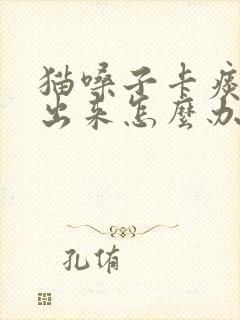 猫嗓子卡痰
出来怎麼办
孔侑